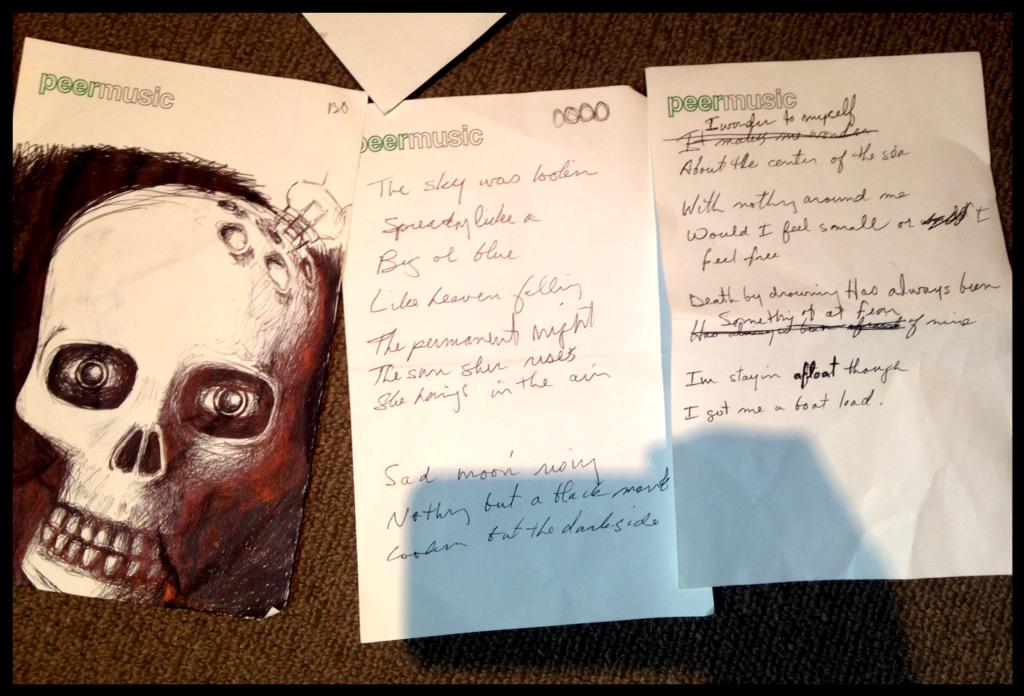 peermusic
130
peermusic
0000
The sky was
Spreading like a
Big ol blue
Like heaven falling
The permanent night
The sun she rises
She hangs in the air
Sad moon rising
Nothing but a black
but the darkside
peermusic
I wonder to myself
It makes me wonder
About the center of the sea
With nothing around me
Would I feel small or
feel free.
Death by drowning Has always been
Something of a fear
Has always been afraid of mine
Im stayin afloat though
I got me a boat load.